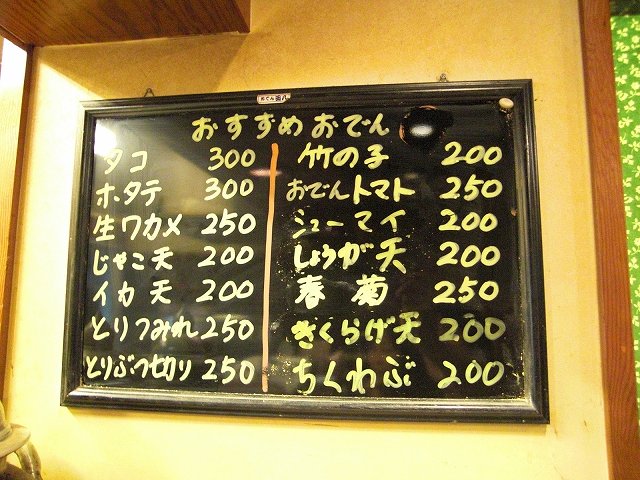 おすすめおでん
タコ 300
ホタテ 300
生ワカメ 250
じゃこ天 200
イカ天 200
とりつみれ 250
とりぶつ切り 250
竹の子 200
おでんトマト 250
シューマイ 200
しょうが天 200
春菊 250
きくらげ天 200
ちくわぶ 200